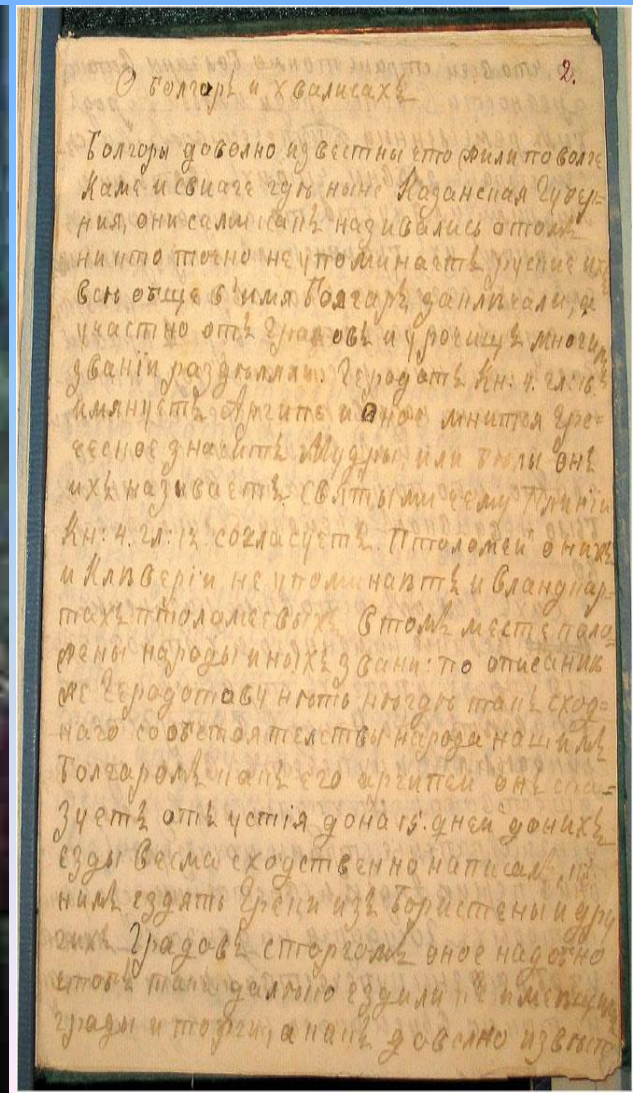 2.
О Болгарѣ и хвалисахъ
Болгоры доволно известны что жили по волге
Каме и свиаге гдѣ ныне Казанская Губер=
ния, они сами какъ назывались о томъ
никто точно не упоминаетъ, руские ихъ
всѣ обще в имя Болгаръ заключали, а
участно отъ Градовъ и урочищъ многим
званіи раздѣляли. Геродотъ Кн: 4. гл:
имянуетъ Аргипе и оное мнится Гре=
ческое значитъ Мудры, или онъ
ихъ называетъ святыми чему Плиніи
Кн: 4. гл: 12 согласуетъ. Птоломей о нихъ
и Клвверіи не упоминаютъ и вландкар=
тахъ птоломеевыхъ в томъ месте поло
жены народы иныхъ звани: по описанию
же Геродотову нѣтъ нигдѣ такъ сход=
наго собстоятелствы народа нашимъ
Болгаромъ какъ его аргипеи онъ ска=
зуетъ отъ устія дона 15. дней до нихъ
езды весма сходственно написалъ, къ
нимъ ездятъ Греки изъ Бористены и дру
гихъ Градовъ сторгомъ оное надобно
чтобъ такъ далѣко ездили не имеющим
грады и торги, а какъ доволно извѣстн